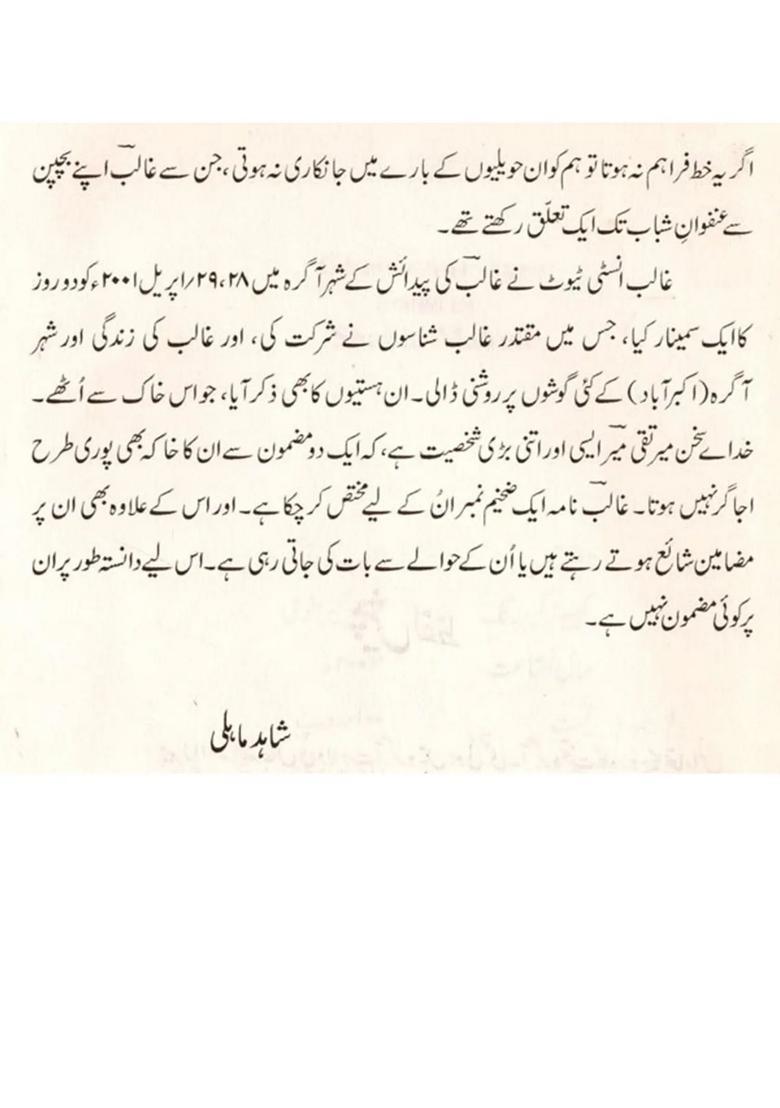 اگر یہ خط فراہم نہ ہوتا تو ہم کو ان حویلیوں کے بارے میں جانکاری نہ ہوتی، جن سے غالبؔ اپنے بچپن
سے عنفوانِ شباب تک ایک تعلّق رکھتے تھے۔
غالب انسٹی ٹیوٹ نے غالبؔ کی پیدائش کے شہر آگرہ میں ۲۸،۲۹؍اپریل ۲۰۰۱ء کو دو روز
کا ایک سمینار کیا، جس میں مقتدر غالب شناسوں نے شرکت کی، اور غالب کی زندگی اور شہر
آگرہ (اکبرآباد) کے کئی گوشوں پر روشنی ڈالی۔ ان ہستیوں کا بھی ذکر آیا، جو اس خاک سے اُٹھے۔
خداے سخن میر تقی میرؔ ایسی اور اتنی بڑی شخصیت ہے، کہ ایک دو مضمون سے ان کا خاکہ بھی پوری طرح
اجاگر نہیں ہوتا۔ غالبؔ نامہ ایک ضخیم نمبر اُن کے لیے مختص کر چکا ہے۔ اور اس کے علاوہ بھی ان پر
مضامین شائع ہوتے رہتے ہیں یا اُن کے حوالے سے بات کی جاتی رہی ہے۔ اس لیے دانستہ طور پر ان
پر کوئی مضمون نہیں ہے۔
شاہد ماہلی